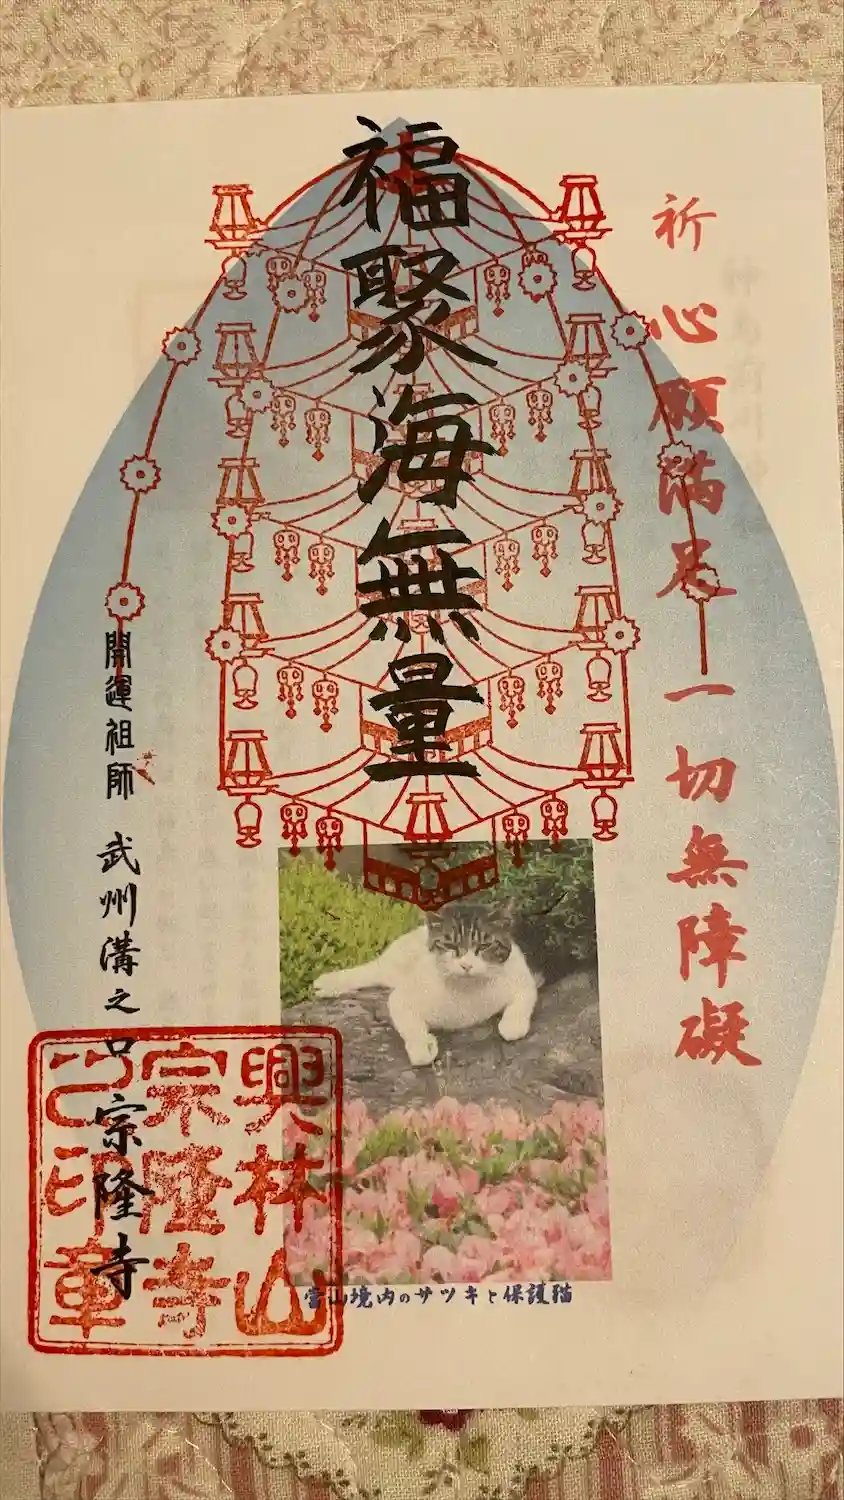 祈 心願満足 一切無障礙
福聚海無量
開運祖師 武州溝之口 宗隆寺
興林山
宗隆寺
之印章
当山境内のサツキと保護猫